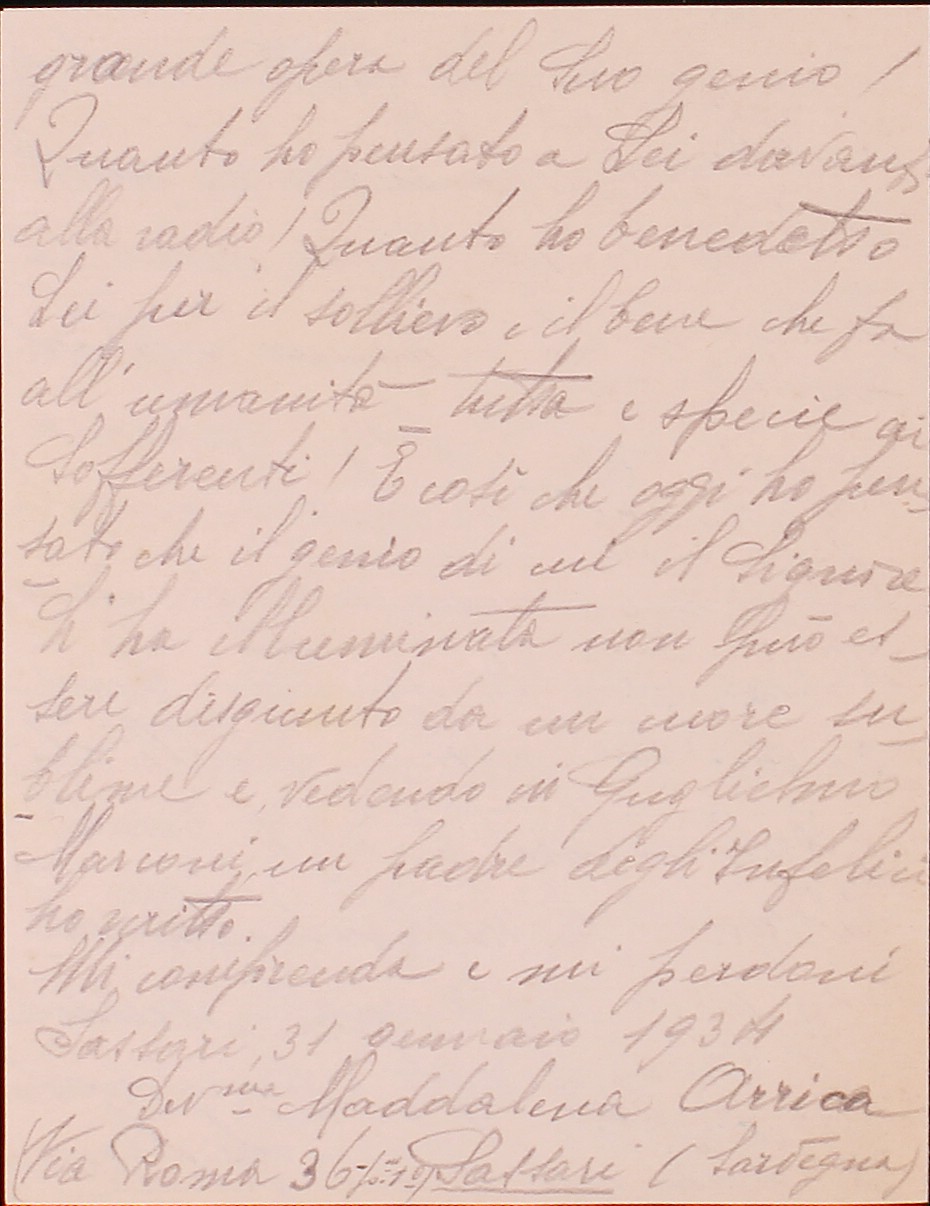 grande opera del Suo genio!
Quanto ho pensato a Lei davanti
alla radio! Quanto ho benedetto
Lei per il sollievo e il bene che fa
all'umanità tutta e specie ai
Sofferenti! È così che oggi ho pen-
sato che il genio di cui il Signore
L'ha illuminata non può es-
sere disgiunto da un cuore su-
blime e, vedendo in Guglielmo
Marconi, un padre degli Infelici
ho scritto.
Mi comprenda e mi perdoni
Sassari, 31 gennaio 1934
Dev.ma Maddalena Arrica
(Via Roma 36 Sassari (Sardegna)